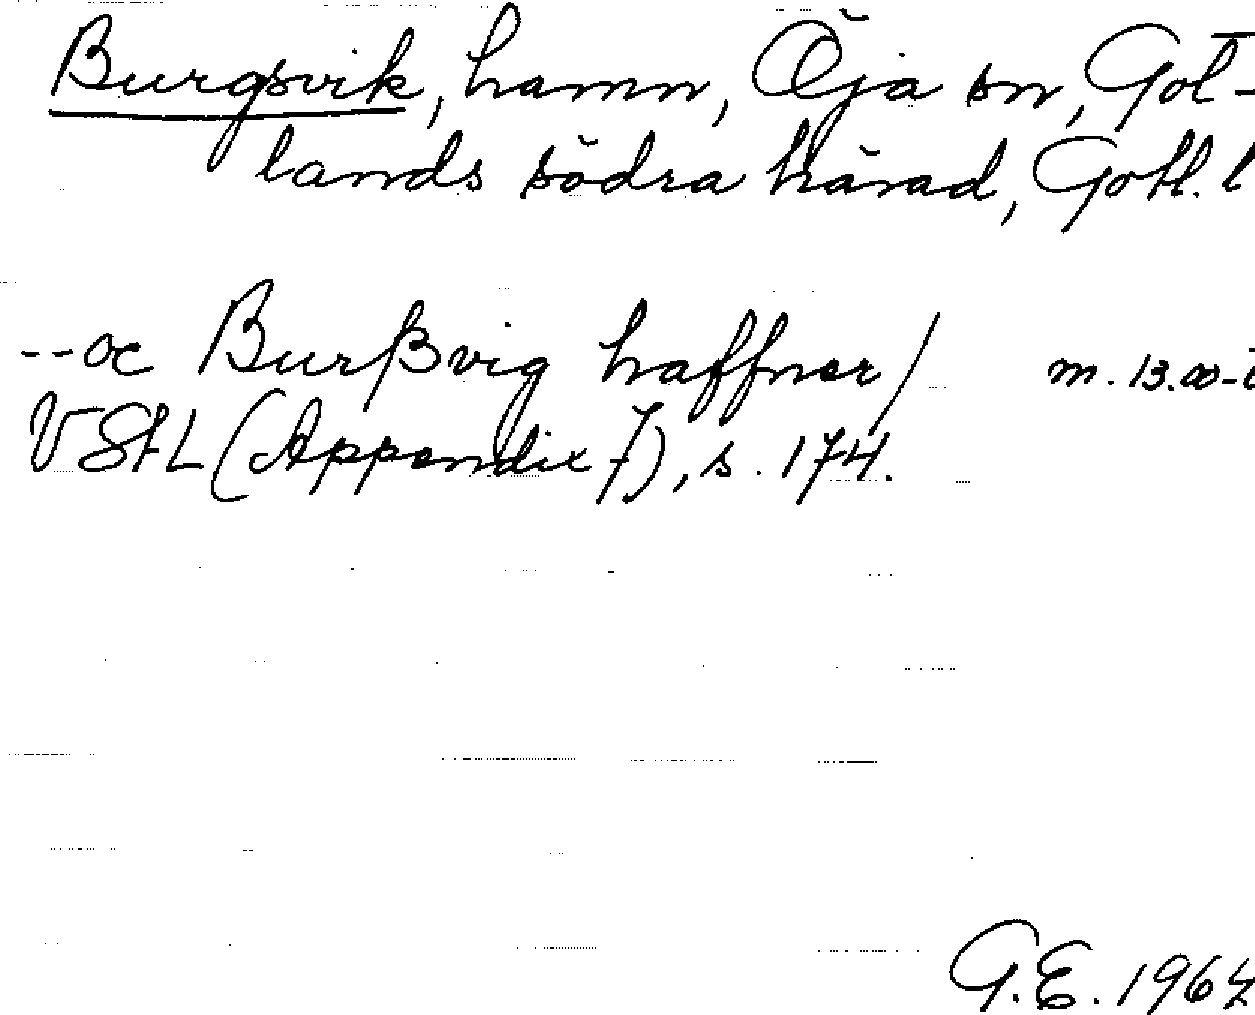 Burgsvik, hamn, Öja sn, Got-
lands södra härad, Gotl. l
--oc Burßvig haffner/ m. 13.00-
VStL (Appendix 7), s. 174.
G.E. 1964